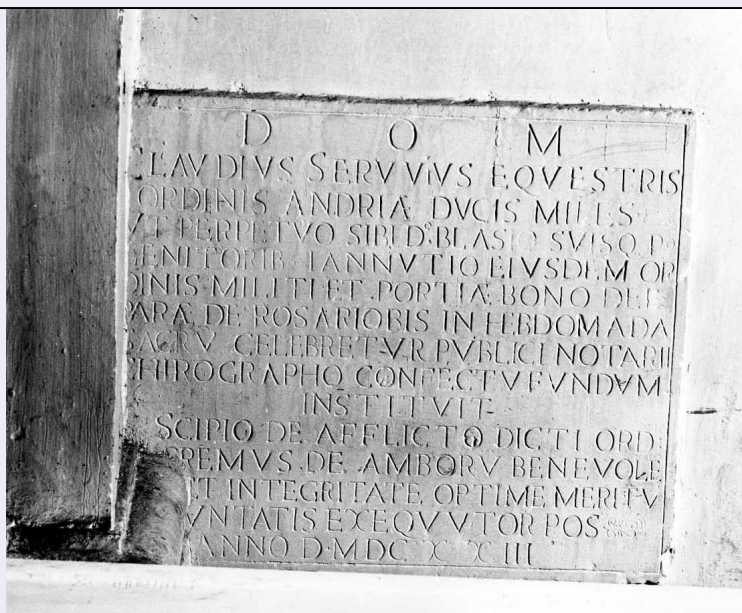 D O M
CLAVDIVS SERVVIVS EQVESTRIS
ORDINIS ANDRIÆ DVCIS MILES
VT PERPETVO SIBI D° BLASIO SVISQ PO
GENITORIB IANNVTIO EIVSDEM OR
DINIS MILITI ET PORTIÆ BONO DEI
PARÆ DE ROSARIO BIS IN HEBDOMADA
SACRV CELEBRETVR PVBLICI NOTARII
CHIROGRAPHO CONFECTV FVNDVM
INSTITVIT
SCIPIO DE AFFLICTO DICTI ORD
DE AMBORV BENEVOLE
INTEGRITATE OPTIME MERITV
VNTATIS EXEQVVTOR POS
ANNO D MDCXXIII